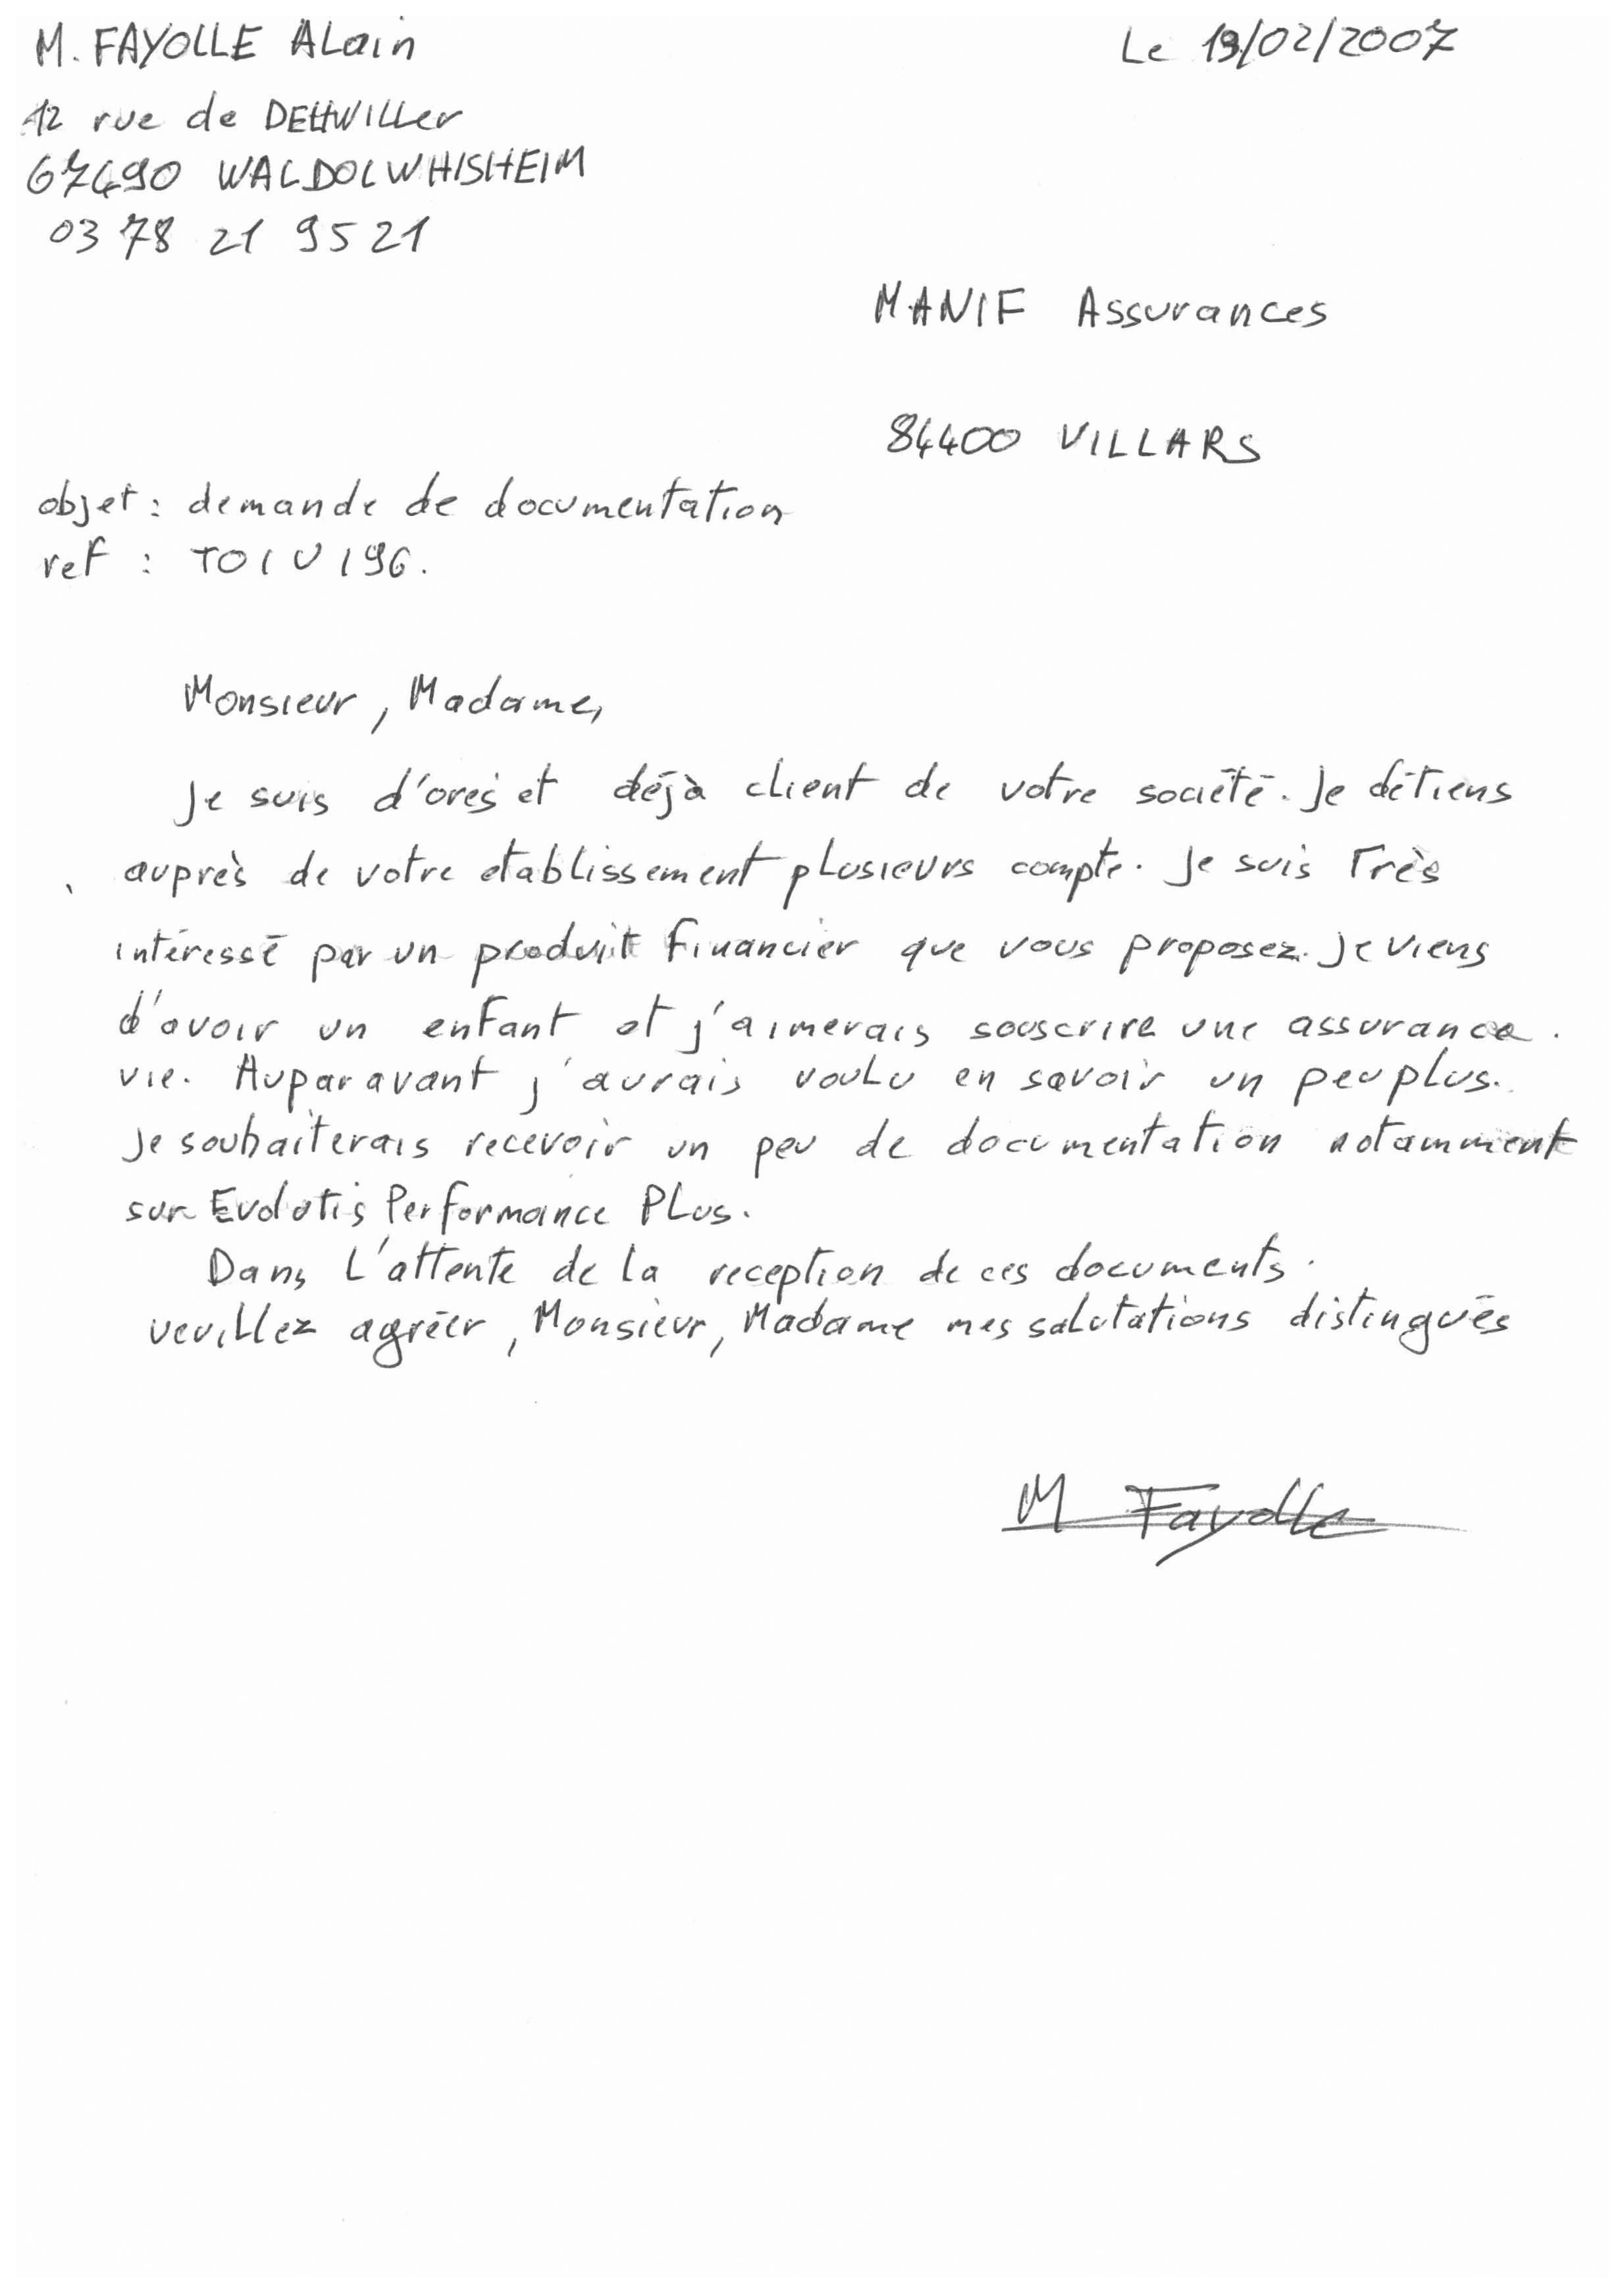 M. FAYOLLE ALain
Le 19/02/2007
12 rue de DETTWILLer
67490 WALDOLWHISHEIM
03 78 21 95 21
MANIF Assurances
84400 VILLARS
objet : demande de documentation
ref : TOIU196.
Monsieur, Madame,
Je suis d'orés et déjà client de votre société. Je détiens
auprès de votre etablissement plusieurs compte. Je suis Très
intéressé par un produit financier que vous proposez. Je viens
d'avoir un enfant et j'aimerais souscrire une assurance.
vie. Auparavant j'aurais voulu en savoir un peu plus.
Je souhaiterais recevoir un peu de documentation notamment
sur Evolutis Performance Plus.
Dans L'attente de la reception de ces documents.
veuillez agréer, Monsieur, Madame mes salutations distingués
M Fayolle